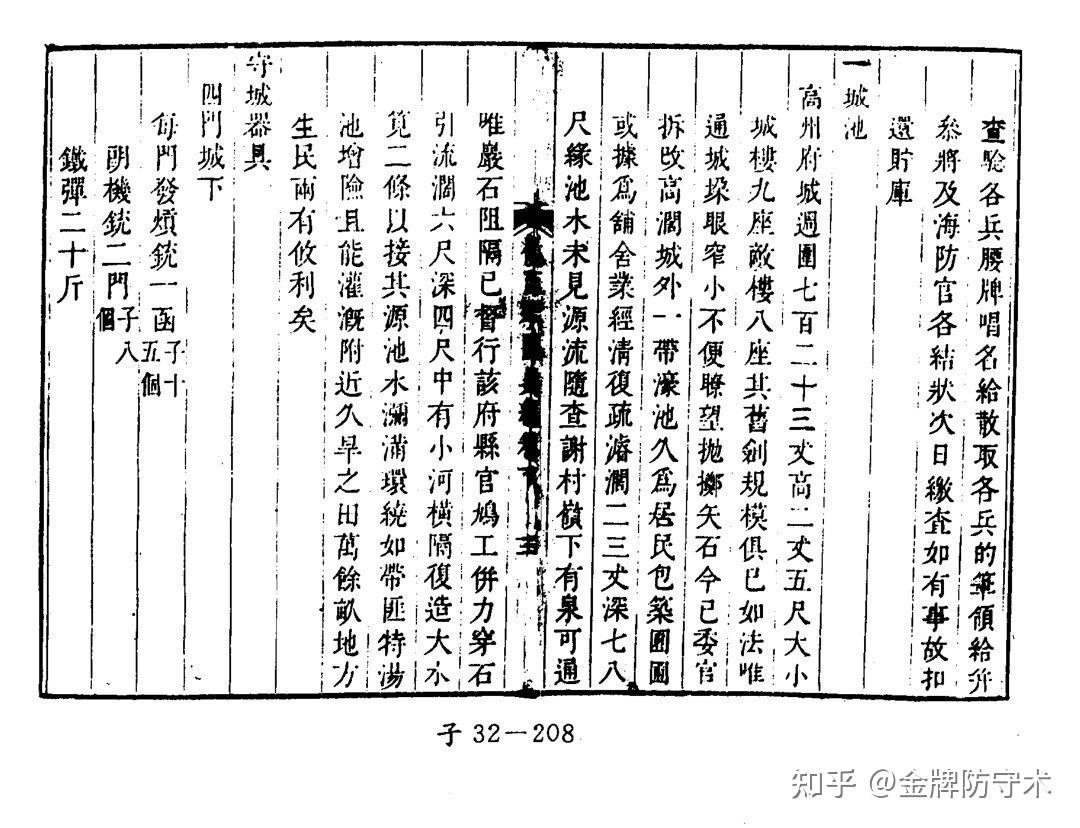 查驗各兵腰牌唱名給散取各兵的筆領給并
叅將及海防官各結狀次日繳査如有事故扣
還貯庫
一城池
高州府城週圍七百二十三丈高二丈五尺大小
城樓九座敵樓八座其舊創規模俱已如法唯
通城垜眼窄小不便瞭望拋擲矢石今已委官
拆改高濶城外一帶濠池久爲居民包築圃
或據爲舖舍業經清復疏濬濶二三丈深七八
尺緣池水未見源流隨查謝村嶺下有泉可通
唯巖石阻隔已督行該府縣官鳩工併力穿石
引流濶六尺深四尺中有小河橫隔復造大水
筧二條以接其源池水瀰滿環繞如帶匪特湯
池增險且能灌漑附近久旱之田萬餘畝地方
生民兩有攸利矣
守城器具
四門城下
每門發熕銃一函子十五個
朋機銃二門子八個
鐵彈二十斤
子 32－208
知乎 @金牌防守术